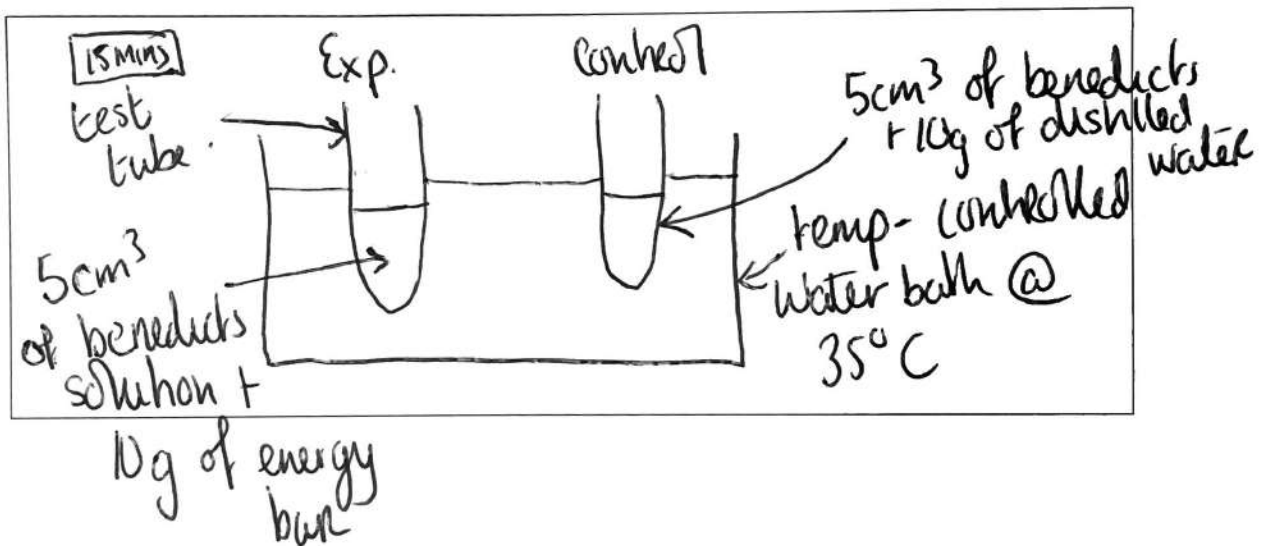 15 MINS
Exp.
control
test
tube.
5cm³ of benedicts
+ 10g of distilled
water
temp- controlled
water bath @
35°C
5cm³
of benedicts
solution +
10g of energy
bar